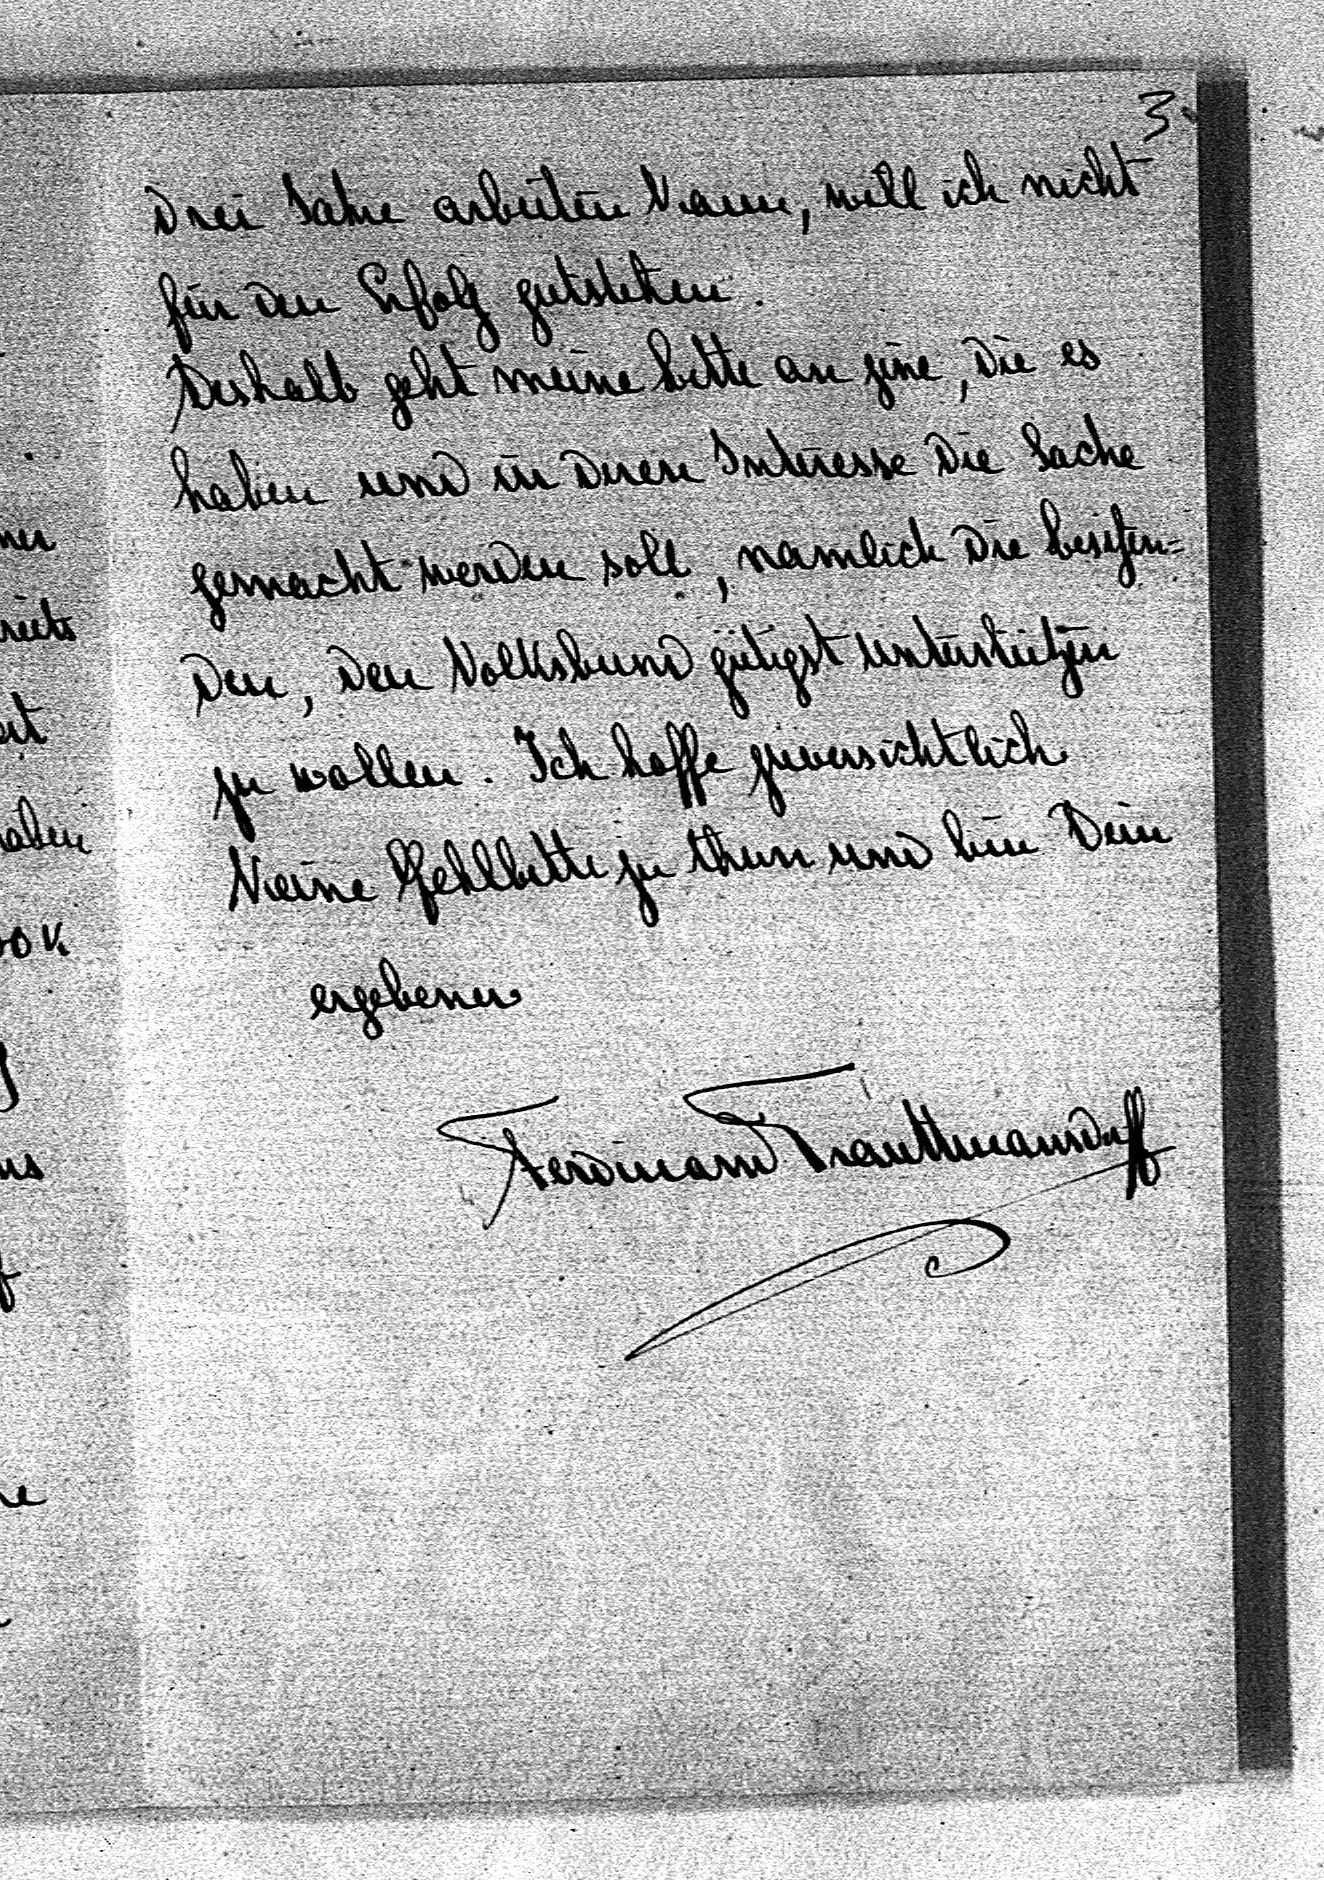 3
Drei Jahre arbeiten kann, will ich nicht
für den Erfolg gutstehen.
Deshalb geht meine bitte an jene, die es
haben und in deren Interesse die Sache
gemacht werden soll, nämlich die besitzen=
den, den Volksbund gütigst unterstützen
zu wollen. Ich hoffe zuversichtlich
keine Fehlbitte zu thun und bin Dein
ergebener
Ferdinand Trauttmansdorff